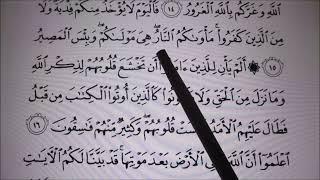 ٱللَّهِ وَغَرَّكُم بِٱللَّهِ ٱلْغَرُورُ ١٤ فَٱلْيَوْمَ لَا يُؤْخَذُ مِنكُمْ فِدْيَةٌ وَلَا
مِنَ ٱلَّذِينَ كَفَرُوا۟ مَأْوَىٰكُمُ ٱلنَّارُ هِىَ مَوْلَىٰكُمْ وَبِئْسَ ٱلْمَصِيرُ
١٥ أَلَمْ يَأْنِ لِلَّذِينَ ءَامَنُوٓا۟ أَن تَخْشَعَ قُلُوبُهُمْ لِذِكْرِ ٱللَّهِ
وَمَا نَزَلَ مِنَ ٱلْحَقِّ وَلَا يَكُونُوا۟ كَٱلَّذِينَ أُوتُوا۟ ٱلْكِتَٰبَ مِن قَبْلُ
فَطَالَ عَلَيْهِمُ ٱلْأَمَدُ قُلُوبُهُمْ وَكَثِيرٌ مِّنْهُمْ فَٰسِقُونَ ١٦
ٱعْلَمُوٓا۟ أَنَّ ٱللَّهَ ٱلْأَرْضَ بَعْدَ مَوْتِهَا قَدْ بَيَّنَّا لَكُمُ ٱلْآيَٰتِ